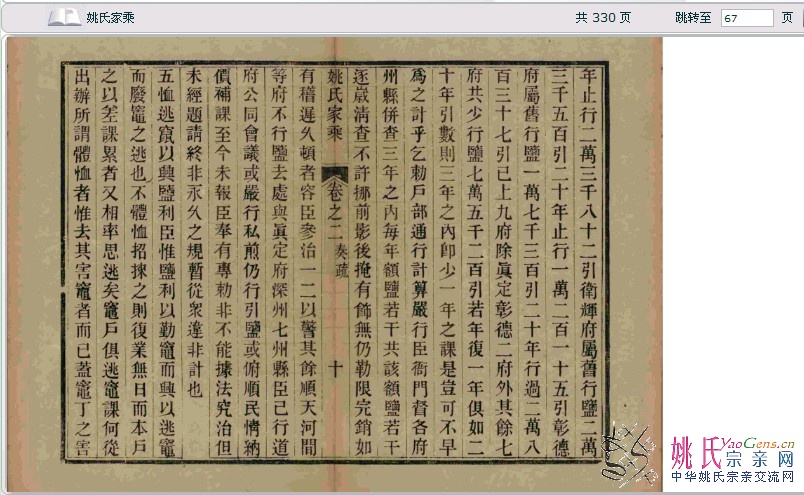 姚氏家乘
共 330 页
跳转至 67 页
年止行二萬三千八十二引衛輝府屬舊行鹽二萬
三千五百引二十年止行一萬二百一十五引彰德
府屬舊行鹽一萬七千三百引二十年行過二萬八
百三十七引已上九府除眞定彰德二府外其餘七
府共少行鹽七萬五千二百引若年復一年俱如二
十年引數則三年之內卽少一年之課是豈可不早
爲之計乎乞勅戶部通行計算嚴行臣衙門督各府
州縣併查三年之內每年額鹽若干共該額鹽若干
逐歲清查不許挪前影後掩有飾無仍勒限完銷如
姚氏家乘 卷之二 奏疏 十
有稽遲久頓者容臣參治一二以警其餘順天河間
等府不行鹽去處與眞定府深州七州縣臣已行道
府公同會議或嚴行私煎仍行引鹽或俯順民情納
價補課至今未報臣奉有專勅非不能據法究治但
未經題請終非永久之規暫從衆違非計也
五恤逃竄以興鹽利臣惟鹽利以勤竈而興以逃竈
而廢竈之逃也不體恤招揀之則復業無日而本戶
之以差課累者又相率思逃矣竈戶俱逃竈課何從
出辦所謂體恤者惟去其害竈者而已蓋竈丁之害
姚氏YaoGens.cn
宗亲网
中华姚氏宗亲交流网